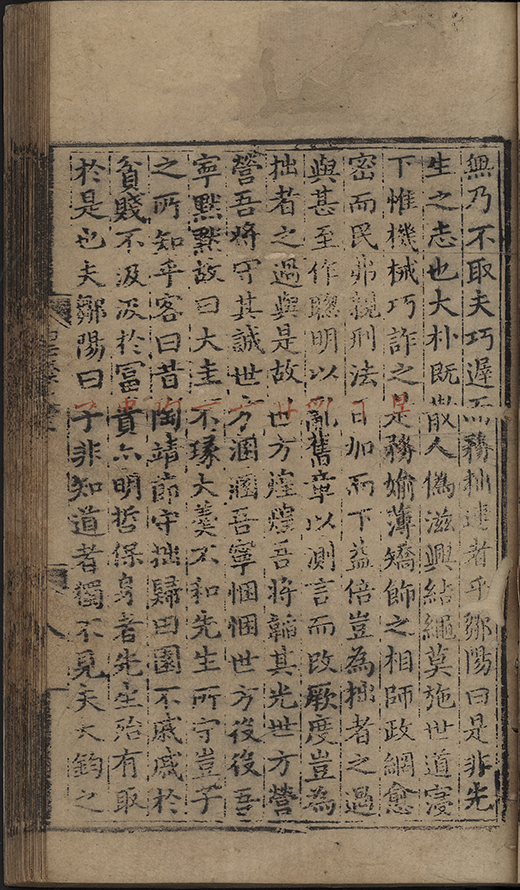 無乃不取夫巧遲而務拙速者乎鄒陽曰是非先
生之志也大朴既散人僞滋興結繩莫施世道寖
下惟機械巧詐之是務婾薄矯飾之相師政網愈
密而民弗親刑法日加而下益倍豈為拙者之過
與甚至作聰明以亂舊章以測言而改厥度豈為
拙者之過與是故世方煌煌吾將韜其光世方營
營吾將守其誠世方涸涸吾寧悃悃世方役役吾
寜默默故曰大圭不瑑大羹不和先生所守豈子
之所知乎客曰昔陶靖節守拙歸田園不戚戚於
貧賤不汲汲於富貴亦明哲保身者先生殆有取
於是也夫鄒陽曰子非知道者獨不見夫大鈞之
八